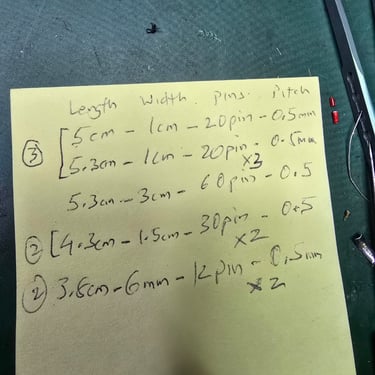 Length Width Pins Pitch
③ [5cm - 1cm - 20pin - 0.5mm
[5.3cm - 1cm - 20pin - 0.5mm
x3
5.3cm - 3cm - 60pin - 0.5
② [4.3cm - 1.5cm - 30pin - 0.5
x2
② 3.6cm - 6mm - 12pin - 0.5mm
x2